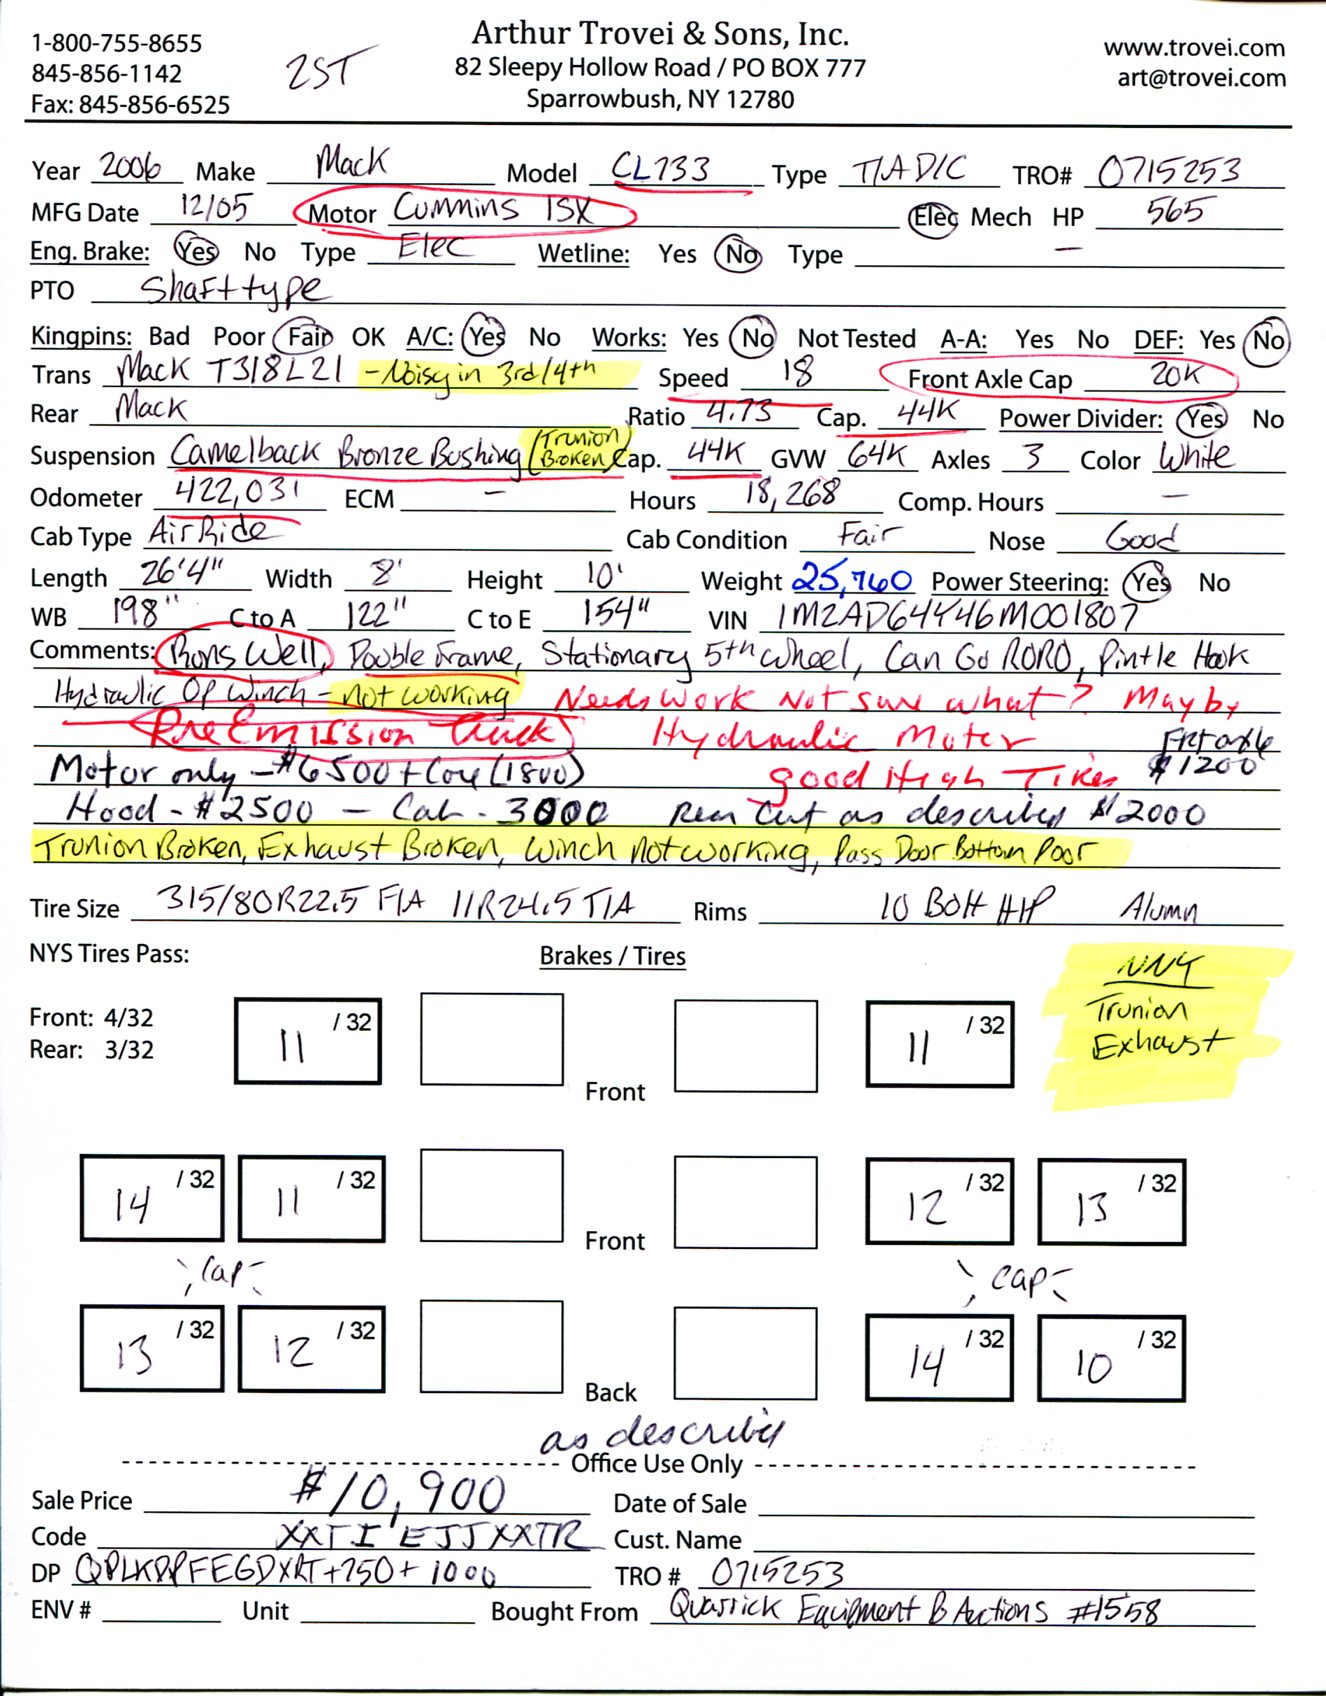 1-800-755-8655
845-856-1142
Fax: 845-856-6525
2ST
Arthur Trovei & Sons, Inc.
82 Sleepy Hollow Road / PO BOX 777
Sparrowbush, NY 12780
www.trovei.com
art@trovei.com
Year 2006 Make Mack Model CL733 Type T/A D/C TRO# 0715253
MFG Date 12/05 Motor Cummins ISX Elec Mech HP 565
Eng. Brake: Yes No Type Elec Wetline: Yes No Type —
PTO Shaft type
Kingpins: Bad Poor Fair OK A/C: Yes No Works: Yes No Not Tested A-A: Yes No DEF: Yes No
Trans Mack T318L21 - Noisy in 3rd/4th Speed 18 Front Axle Cap 20K
Rear Mack Ratio 4.73 Cap. 44K Power Divider: Yes No
Suspension Camelback Bronze Bushing (Trunion Broken) Cap. 44K GVW 64K Axles 3 Color White
Odometer 422,031 ECM — Hours 18,268 Comp. Hours —
Cab Type Air Ride Cab Condition Fair Nose Good
Length 26'4" Width 8' Height 10' Weight 25,760 Power Steering: Yes No
WB 198" C to A 122" C to E 154" VIN 1M2AD64Y46M001807
Comments: Runs Well, Double Frame, Stationary 5th Wheel, Can Go RORO, Pintle Hook
Hydraulic Op Winch - not working Needs work Not sure what? Mayby
Pre Emission Truck Hydraulic Motor Frt axle
Motor only - $6500 + Core (1800) good High Tires $1200
Hood - $2500 — Cab - 3000 Rear Cut as described $12000
Trunion Broken, Exhaust Broken, Winch not working, Pass Door Bottom Poor
Tire Size 315/80R22.5 F/A 11R24.5 T/A Rims 10 Bolt H/P Alumn
NYS Tires Pass: Brakes / Tires
NNY
Trunion
Exhaust
Front: 4/32
Rear: 3/32
11 /32 Front 11 /32
14 /32 11 /32 Front 12 /32 13 /32
Cap Cap
13 /32 12 /32 Back 14 /32 10 /32
as described
Office Use Only
Sale Price $10,900 Date of Sale
Code XXTI EJJXXTR Cust. Name
DP QPLKDPFEGDXRT+750+1000 TRO # 0715253
ENV # Unit Bought From Quarrick Equipment & Auctions #1558